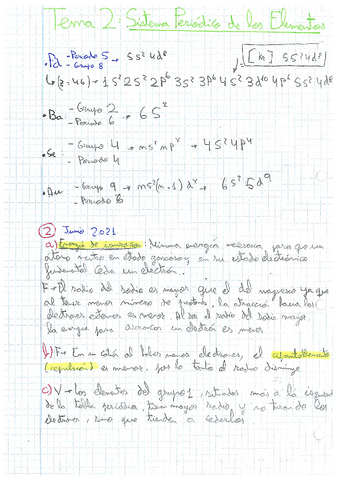 Tema 2: Sistema Periódico de los Elementos
• Pd - Periodo 5 → 5s² 4d⁸
- Grupo 8
[Kr] 5s² 4d⁸
↳ (Z=46) → 1s² 2s² 2p⁶ 3s² 3p⁶ 4s² 3d¹⁰ 4p⁶ 5s² 4d⁸
• Ba - Grupo 2
- Periodo 6
6s²
• Se - Grupo 4 → ns² np⁴ → 4s² 4p⁴
- Periodo 4
• Au - Grupo 9 → ns² (n-1) d⁹ → 6s² 5d⁹
- Periodo 6
② Junio 2021
a) Energía de ionización: Mínima energía necesaria para que un
átomo neutro en estado gaseoso y en su estado electrónico
fundamental ceda un electrón.
F → El radio del sodio es mayor que el del magnesio ya que
al tener menor número de protones, la atracción hacia los
electrones externos es menor. Al ser el radio del sodio mayor
la energía para arrancar un electrón es menor
b) F → En un catión al haber menos electrones, el apantallamiento
(repulsión) es menor, por lo tanto el radio disminuye
c) V → Los elementos del grupo 1, situados más a la izquierda
de la tabla periódica, tienen mayor radio, y no tiran de los
electrones, sino que tienden a cederlos